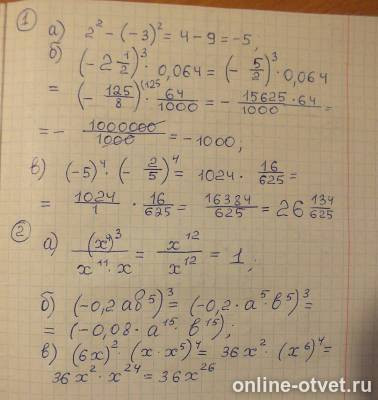 ① а) 2² - (-3)² = 4 - 9 = -5;
б) (-2 1/2)³ · 0,064 = (- 5/2)³ · 0,064
= (- 125/8)(125 · 64/1000 = - 15625 · 64/1000 =
= - 1000000/1000 = -1000;
в) (-5)⁴ · (- 2/5)⁴ = 1024 · 16/625 =
= 1024/1 · 16/625 = 16384/625 = 26 134/625
② а) (x⁴)³/x¹¹ · x = x¹²/x¹² = 1;
б) (-0,2 ав⁵)³ = (-0,2 · а⁵ · в⁵)³ =
= (-0,08 · а¹⁵ · в¹⁵);
в) (6x)² · (x · x⁵)⁴ = 36x² · (x⁶)⁴ =
36x² · x²⁴ = 36x²⁶
online-otvet.ru